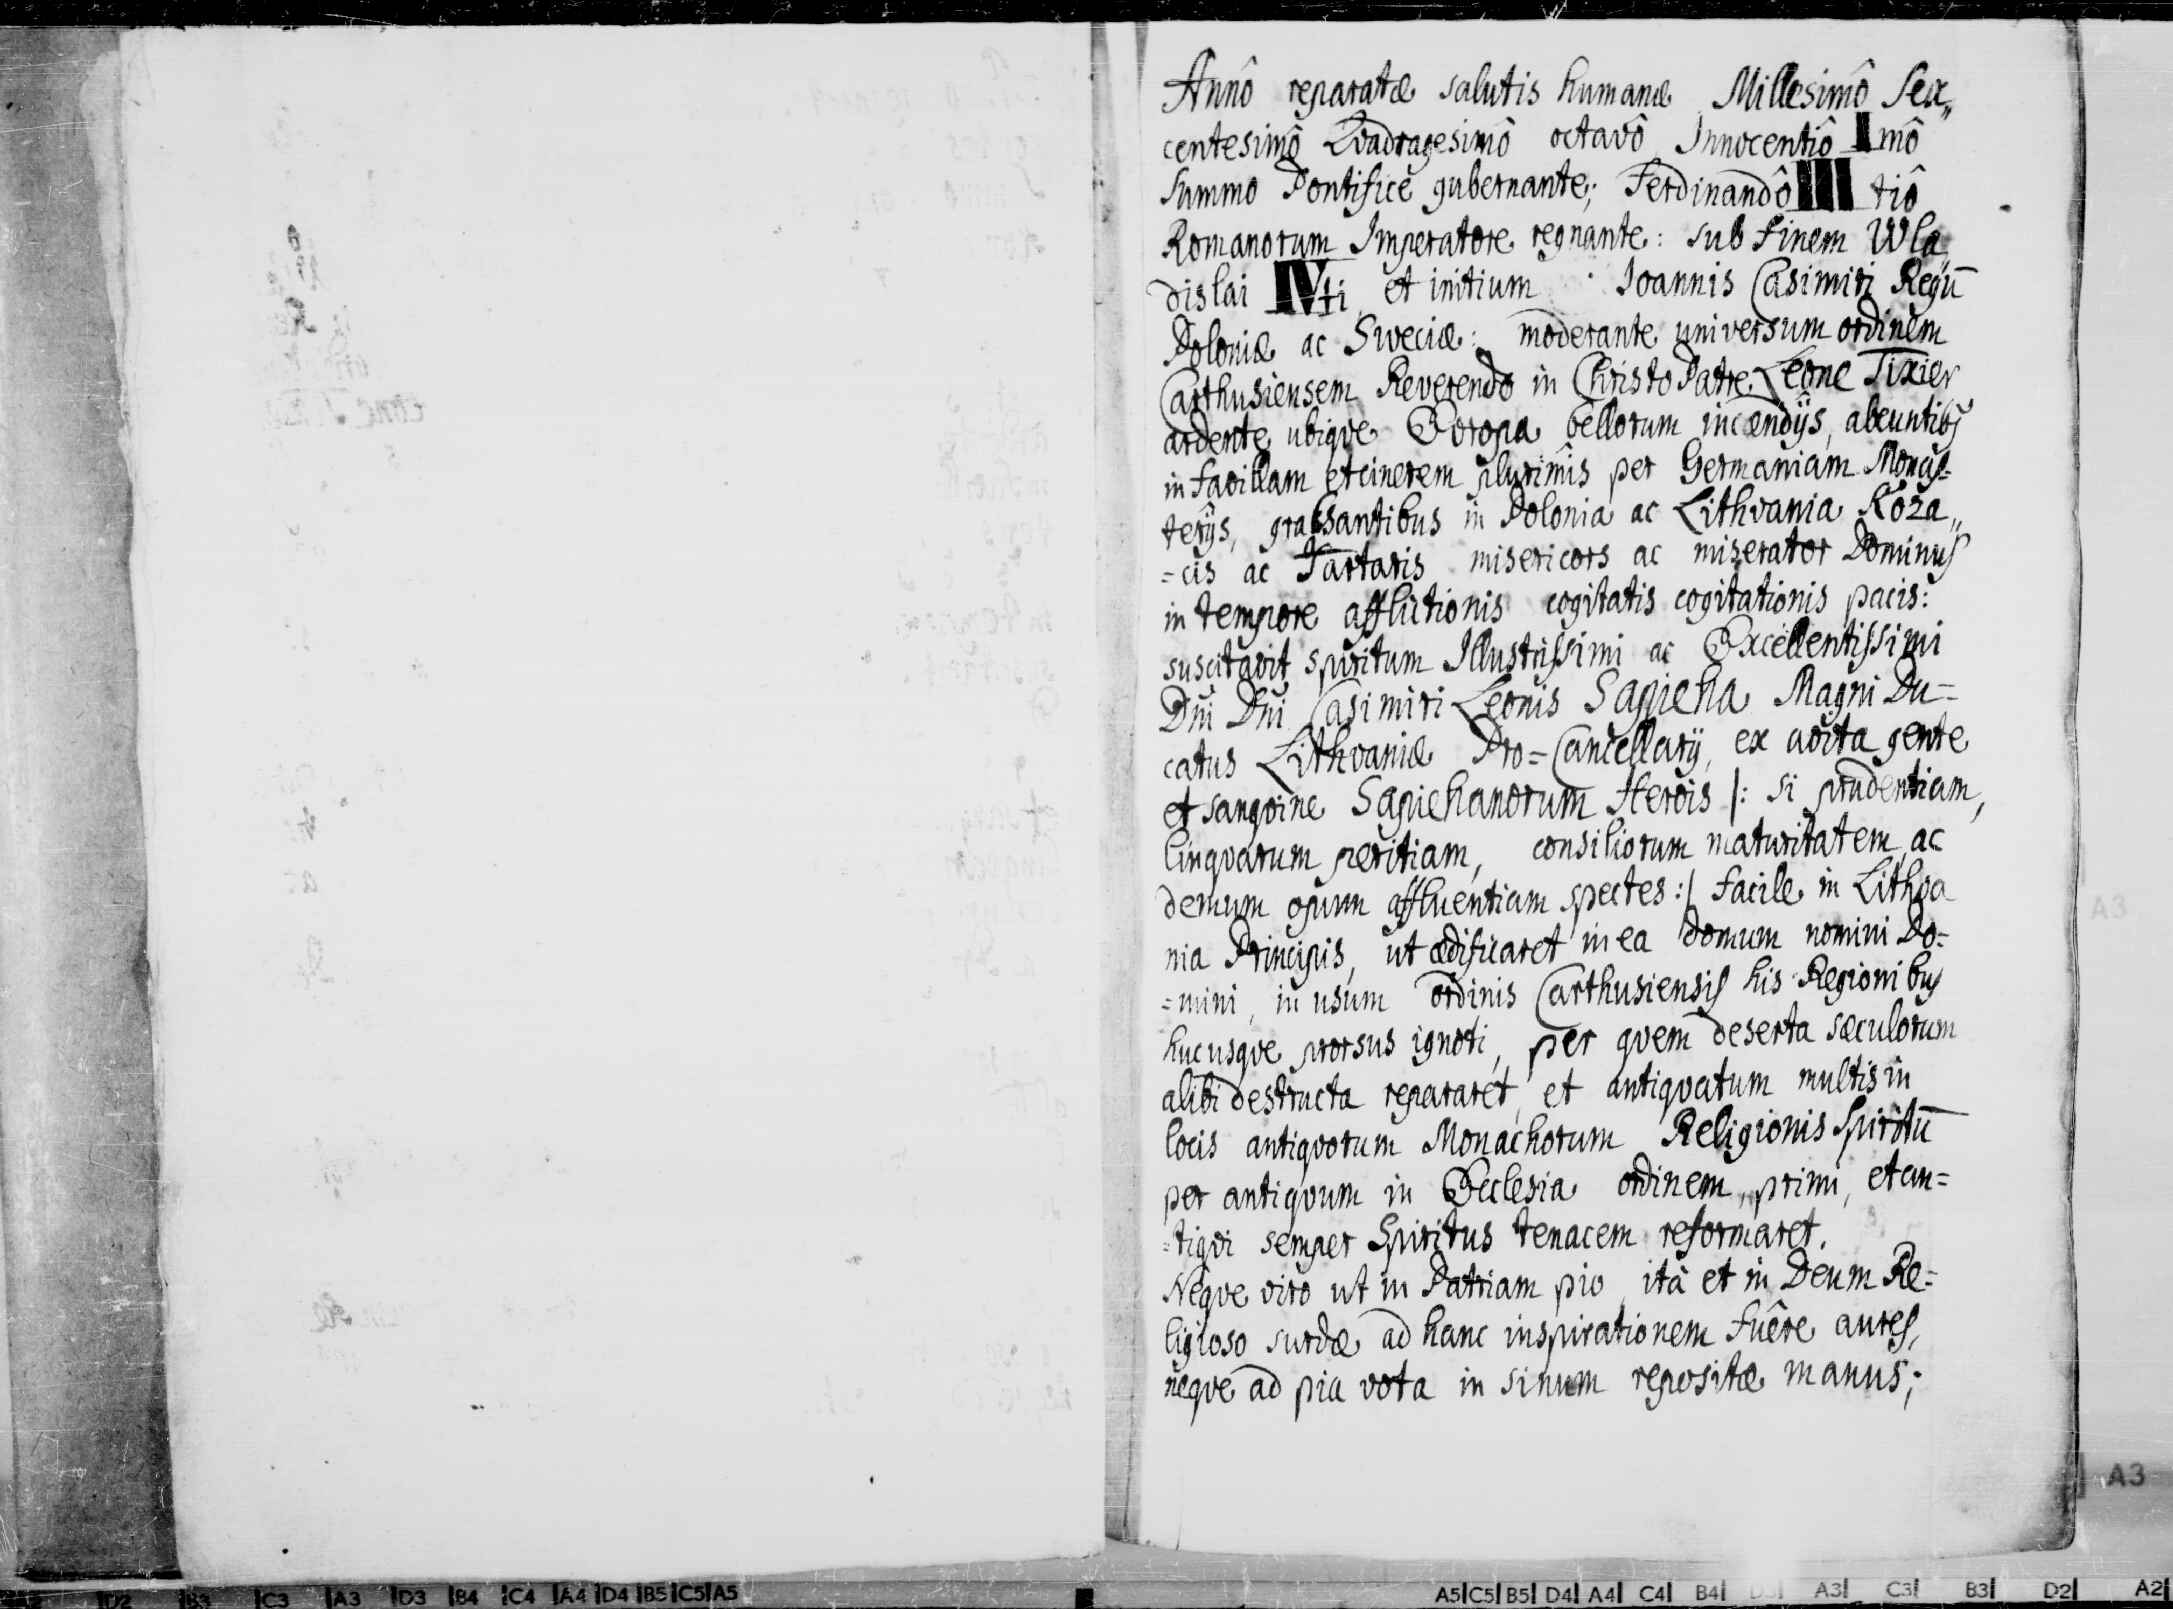 Annô reparatæ salutis humanæ Millesimô Sex„
centesimô Qvadragesimô octavô Innocentiô I mô
summo Pontifice gubernante; Ferdinandô III tiô
Romanorum Imperatore regnante: sub finem Wla„
dislai IVti et initium Joannis Casimiri Regū
Poloniæ ac Sweciæ: moderante universum ordinem
Carthusiensem Reverendo in Christo Patre Leone Tixier
ardente ubiqve Europa bellorum incendÿs, abeuntibꝰ
in favillam et cinerem plurimis per Germaniam Monas-
terÿs, grassantibus in Polonia ac Lithvania Koza„
=cis ac Tartaris misericors ac miserator Dominus
in tempore afflictionis cogitatis cogitationis pacis:
suscitavit spiritum Illustrissimi ac Excellentissimi
Dni Dni Casimiri Leonis Sapieha Magni Du=
catus Lithvaniæ Pro=Cancellarÿ, ex avita gente
et sangvine Sapiehanorum Herois |: si prudentiam,
lingvarum peritiam, consiliorum maturitatem, ac
demum opum affluentiam spectes :| facile in Lithva
nia Principis, ut ædificaret in ea domum nomini Do=
=mini, in usum ordinis Carthusiensis his Regionibus
hucusqve prorsus ignoti, per qvem deserta sæculorum
alibi destructa repararet, et antiqvatum multis in
locis antiqvorum Monachorum Religionis Spiritū
per antiqvum in Ecclesia ordinem, primi, et an=
=tiqvi semper Spiritus tenacem reformaret.
Neqve viro ut in Patriam pio ità et in Deum Re=
ligioso surdæ ad hanc inspirationem fuêre aures,
neqve ad pia vota in sinum repositæ manus;
A3
A3
A2 D2 B3 C3 A3 D3 B4 C4 A4 D4 B5 C5 A5
A5 C5 B5 D4 A4 C4 B4 D3 A3 C3 B3 D2 A2